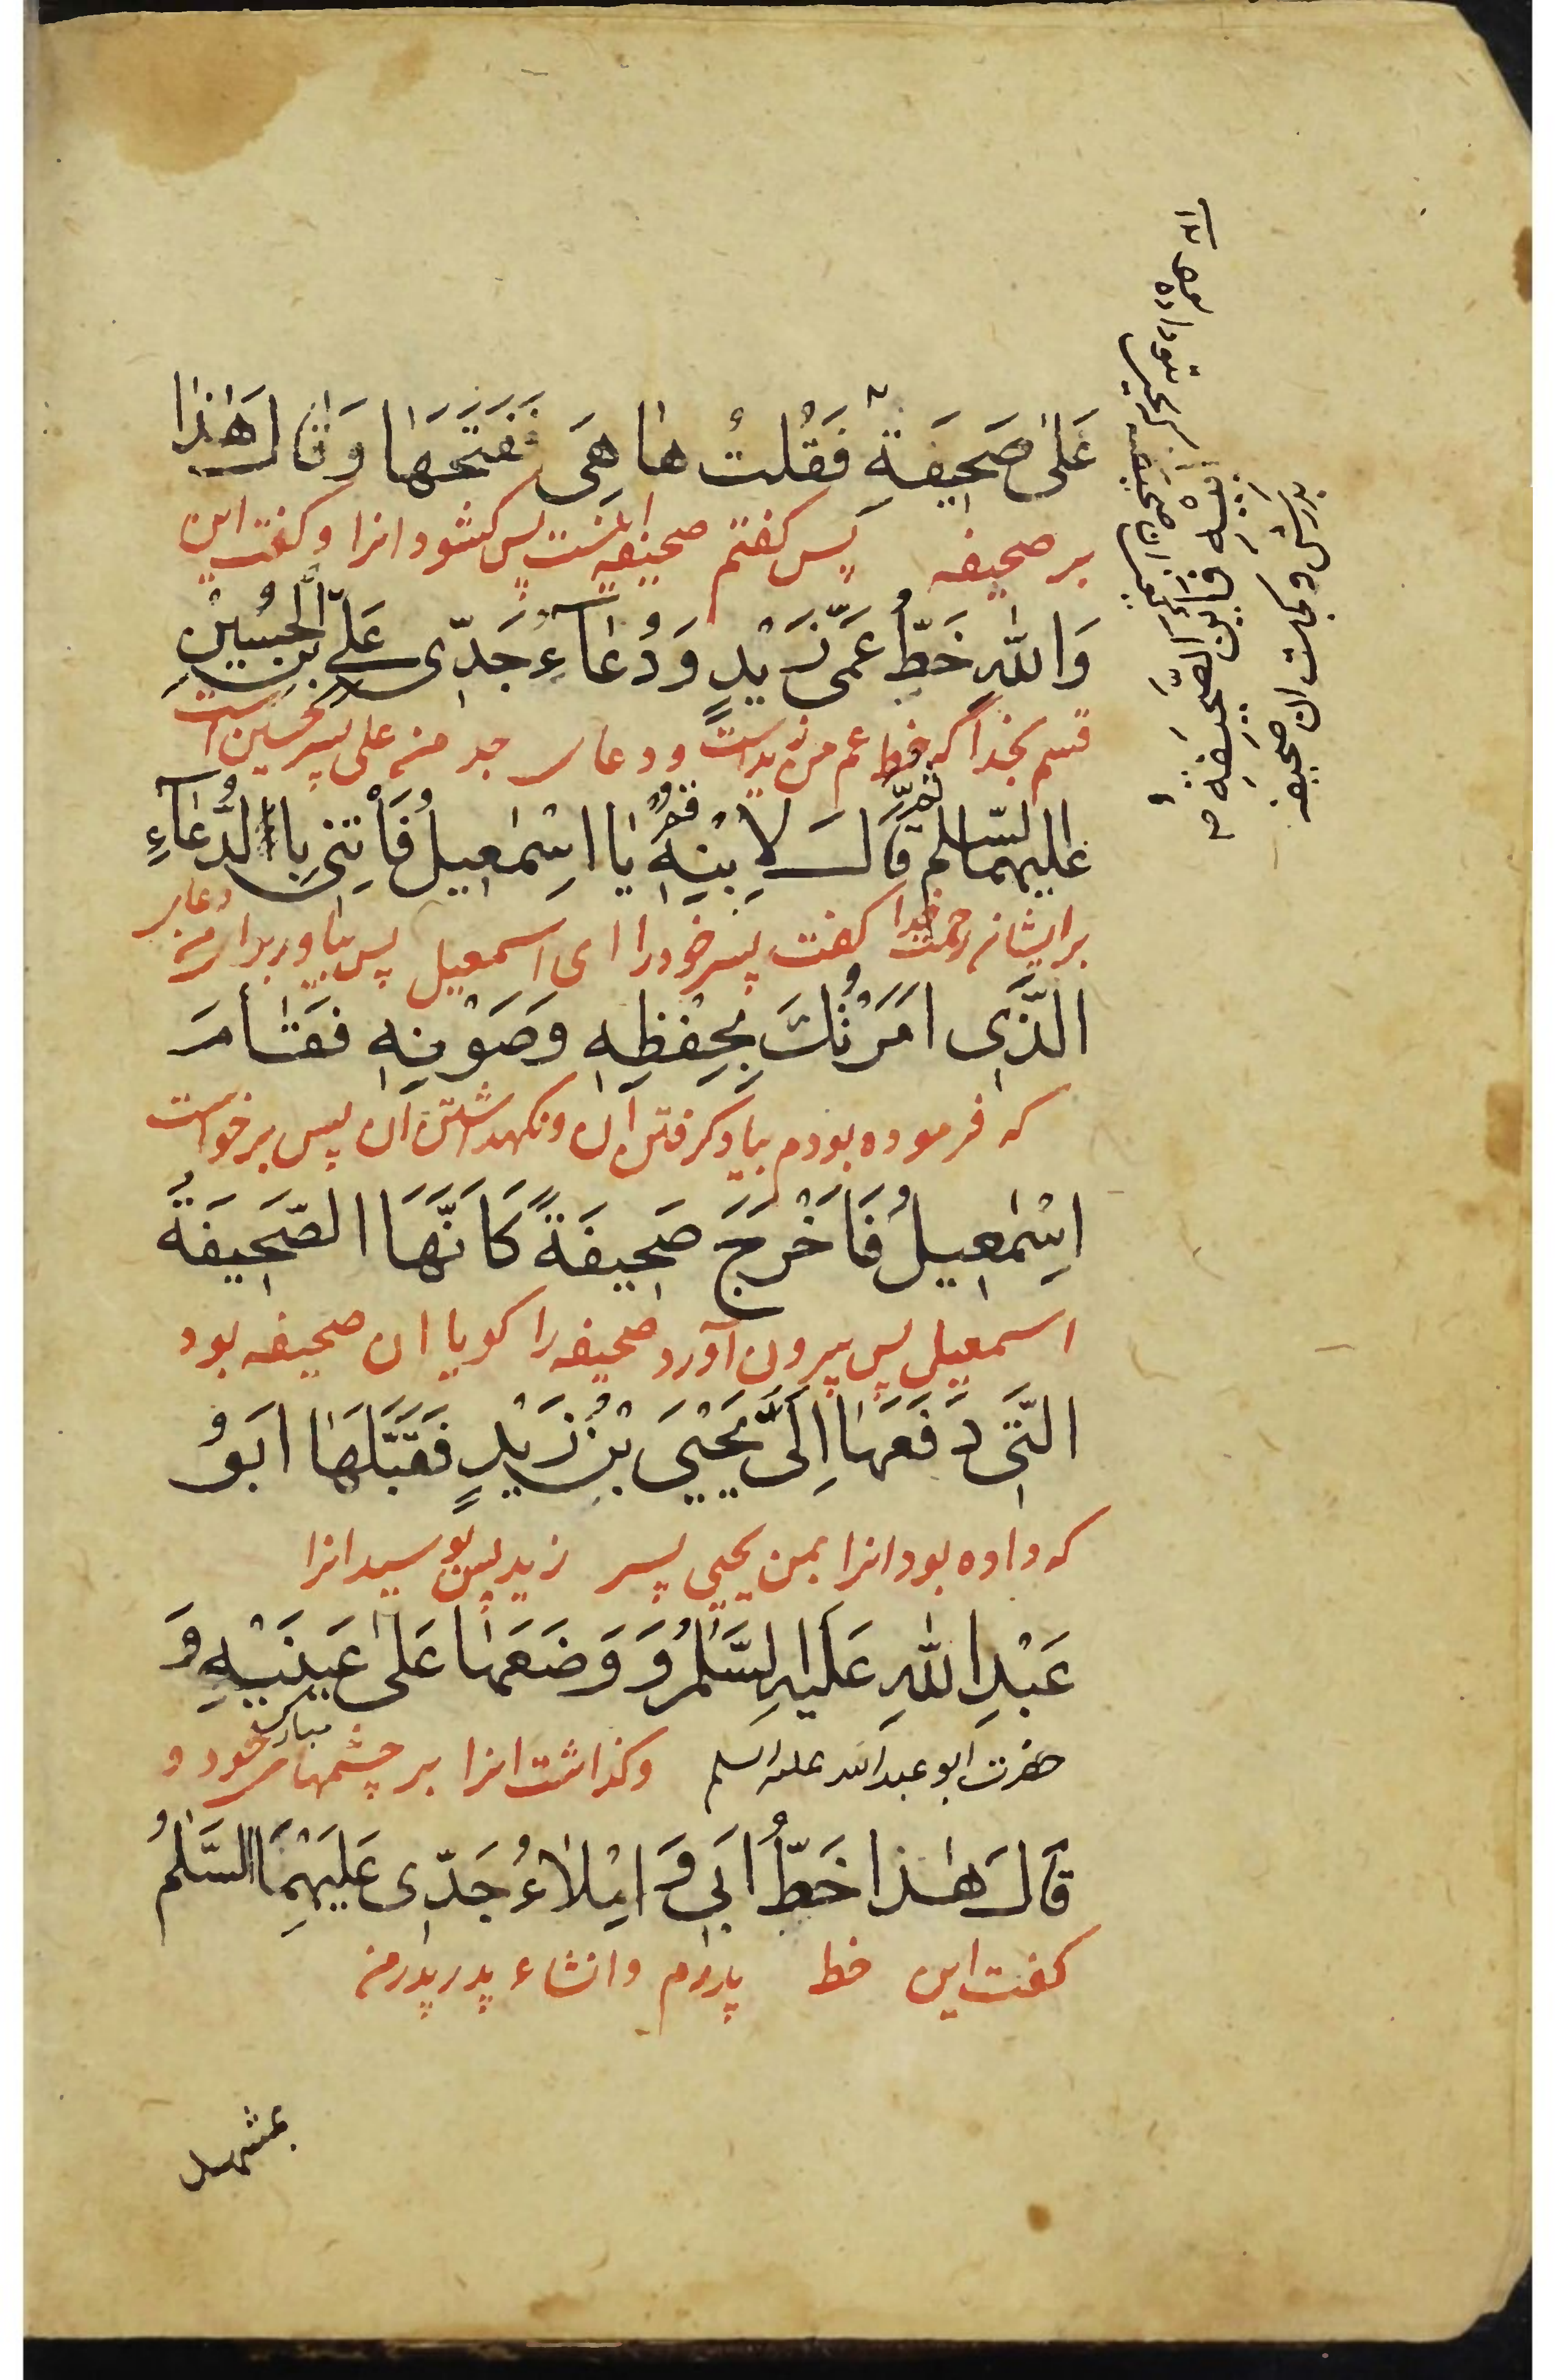 عَلىٰ صَحِيفَةٍ فَقُلتُ هٰا هِىَ فَفَتَحَهٰا وَقٰالَ هٰذٰا
بر صحیفه پس کفتم صحیفه اینست پس کشود انرا وکفت این
وَاللّٰهِ خَطُّ عَمّى زَيْدٍ وَدُعٰآءُ جَدّى عَلىِّ بْنِ الْحُسَيْنِ
قسم بخدا که خط عم من زیداست ودعای جد من علی پسر حسین است
عَلَيهِمَا السّلم ثمّ قٰالَ لِابْنِهِ قُمْ يٰا اسْمٰعِيلُ فَأْتِنى بِالدُّعٰآءِ
برایشان رحمت خدا کفت پسر خود را ای اسمعیل پس بیاور برای من دعای
الَّذِى امَرْتُكَ بِحِفْظِهِ وَصَوْنِهِ فَقٰامَ
که فرموده بودم بیاد کرفتن ان ونکهداشتن ان پس برخواست
اسْمٰعِيلُ فَاَخْرَجَ صَحِيفَةً كَاَنَّهَا الصَّحِيفَةُ
اسمعیل پس بیرون آورد صحیفه را کویا ان صحیفه بود
الَّتِى دَفَعَهٰا اِلَىَّ يَحْيَى بْنُ زَيْدٍ فَقَبَّلَهٰا ابَوُ
که داده بود انرا بمن یحیی پسر زید پس بوسید انرا
عَبْدِ اللّٰهِ عَلَيهِ السَّلٰمُ وَ وَضَعَهٰا عَلىٰ عَيْنَيْهِ وَ
حضرت ابو عبدالله علیه السلم وکذاشت انرا بر چشمهای مبارک خود و
قٰالَ هٰذا خَطُّ ابَى وَ امِْلٰاءُ جَدّى عَلَيْهِمَا السَّلٰمُ
کفت این خط پدرم وانشاء پدر پدر من
بمشهد
اَبيهِ فَاَيْنَ الصَّحيفَةُ
پدرش وکجاست ان صحیفه